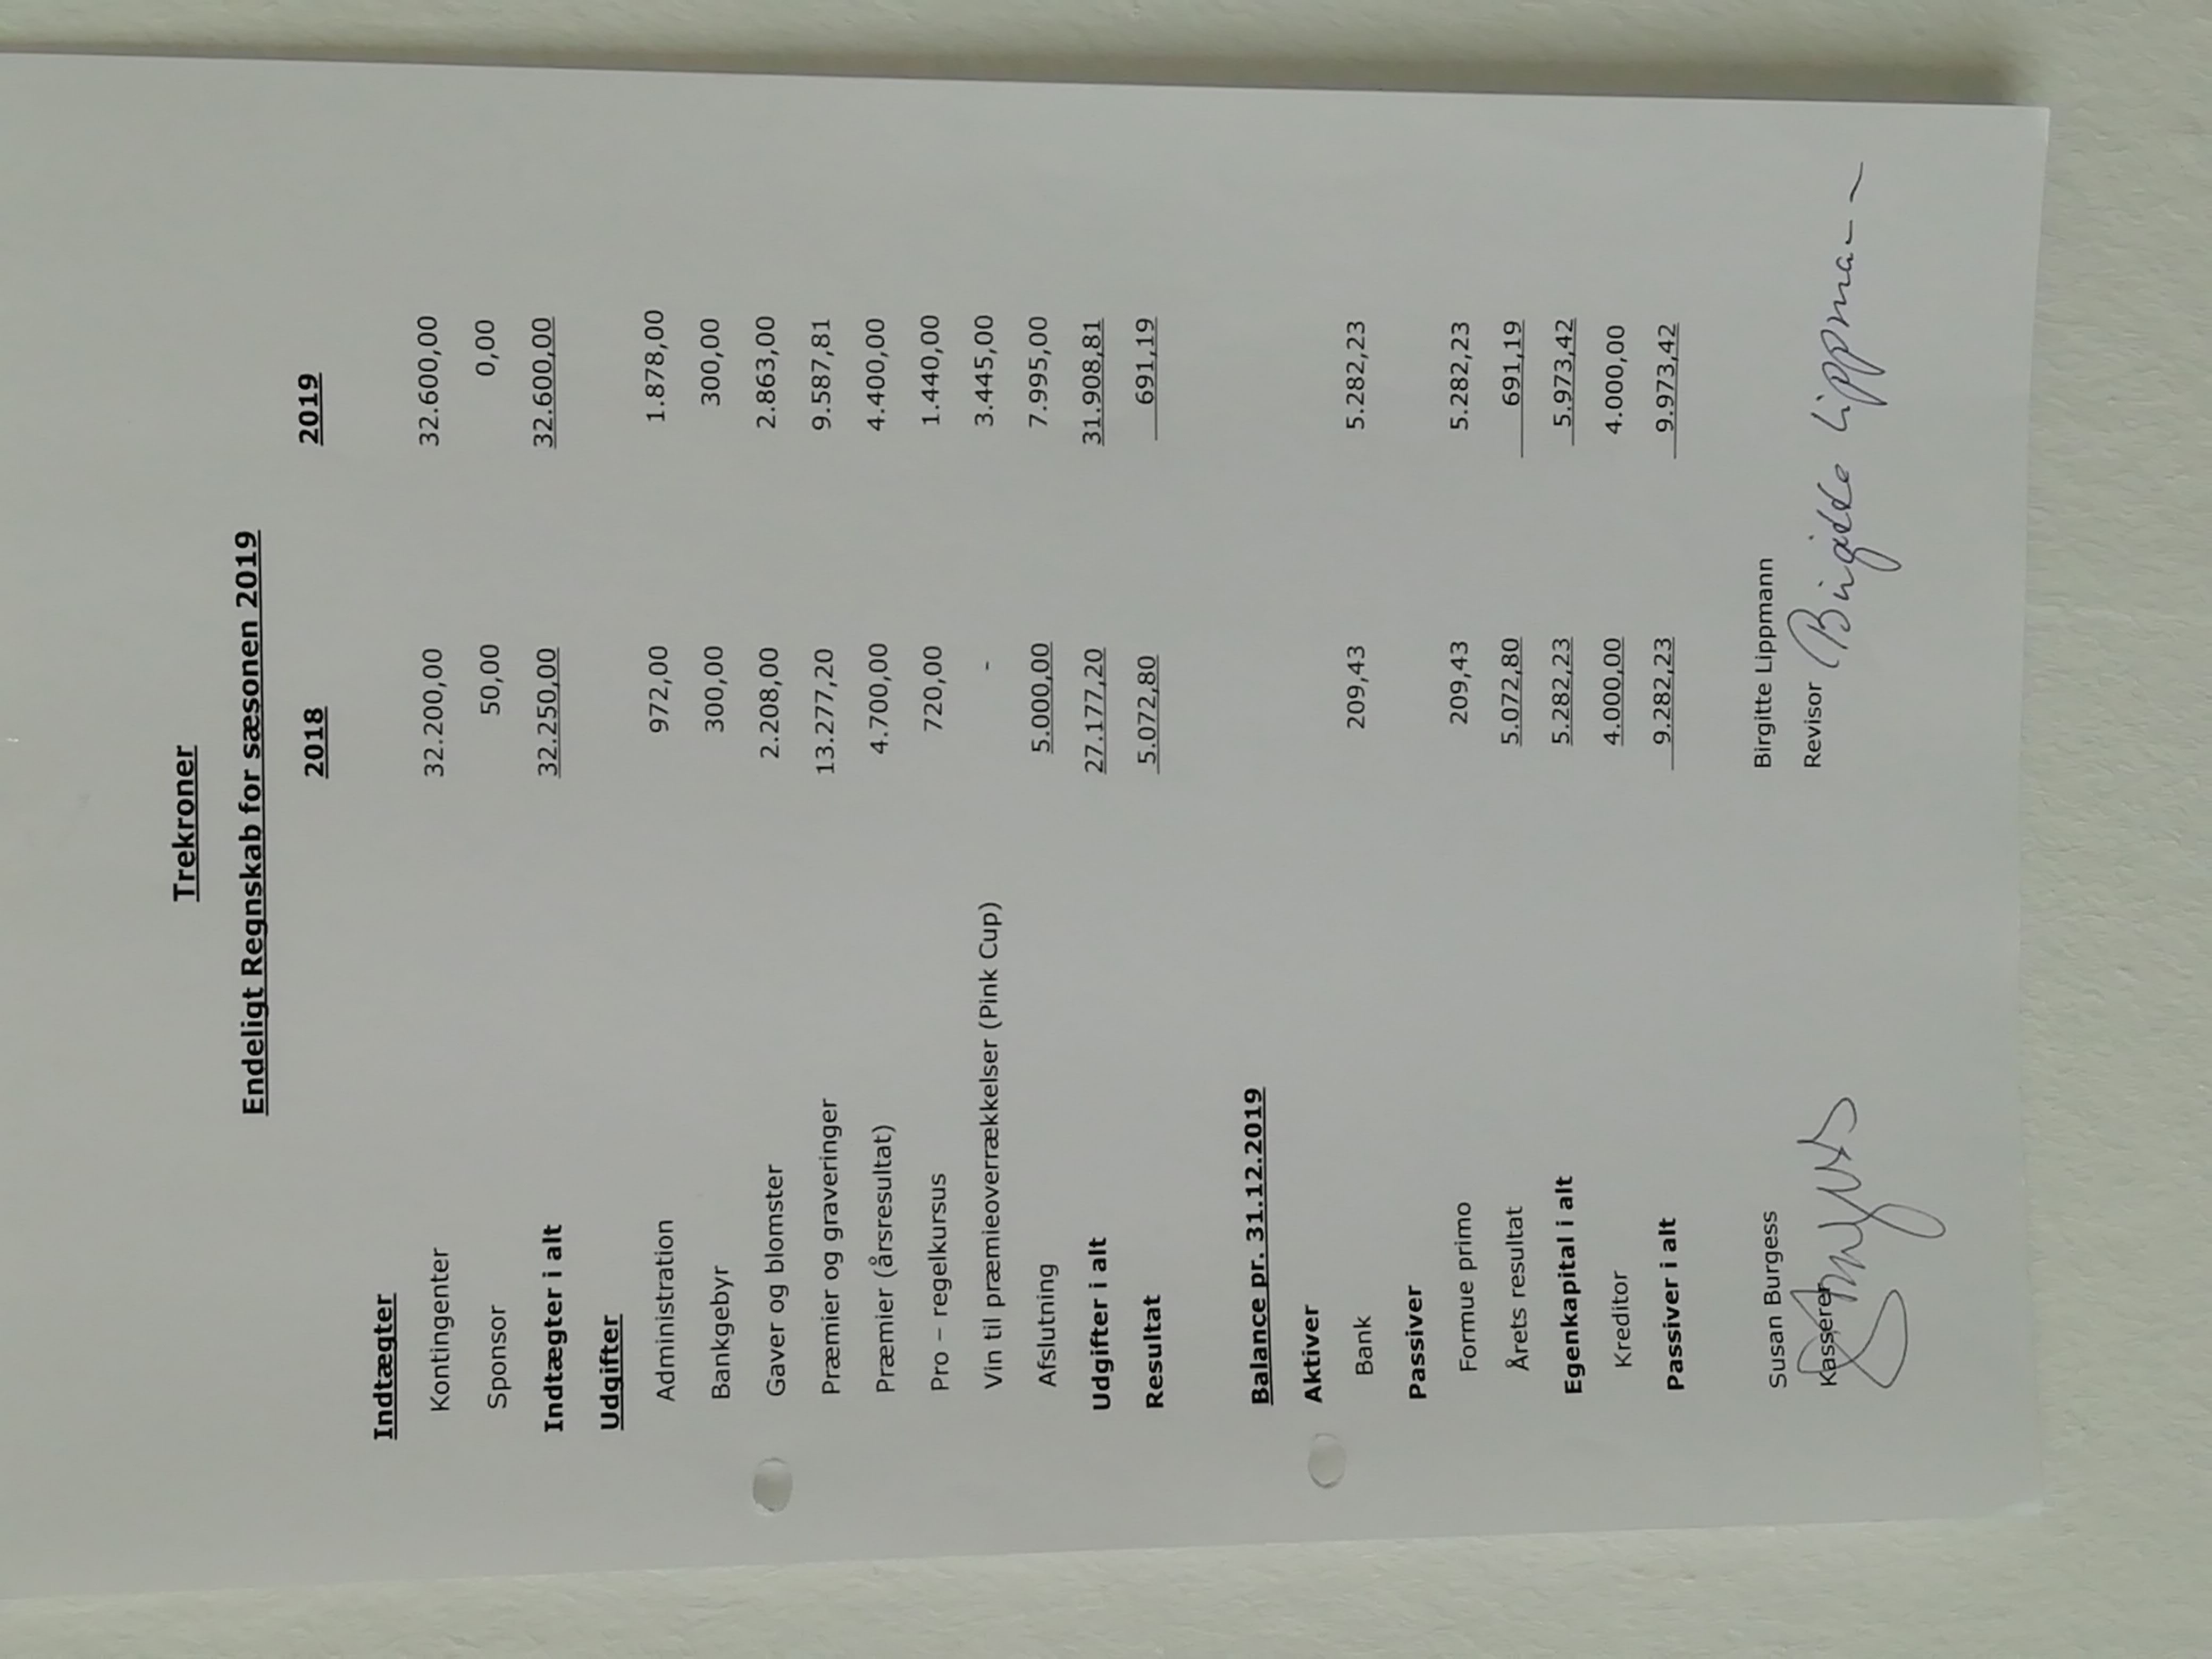 Trekroner
Endeligt Regnskab for sæsonen 2019
2018 2019
Indtægter
Kontingenter 32.200,00 32.600,00
Sponsor 50,00 0,00
Indtægter i alt 32.250,00 32.600,00
Udgifter
Administration 972,00 1.878,00
Bankgebyr 300,00 300,00
Gaver og blomster 2.208,00 2.863,00
Præmier og graveringer 13.277,20 9.587,81
Præmier (årsresultat) 4.700,00 4.400,00
Pro – regelkursus 720,00 1.440,00
Vin til præmieoverrækkelser (Pink Cup) - 3.445,00
Afslutning 5.000,00 7.995,00
Udgifter i alt 27.177,20 31.908,81
Resultat 5.072,80 691,19
Balance pr. 31.12.2019
Aktiver
Bank 209,43 5.282,23
Passiver
Formue primo 209,43 5.282,23
Årets resultat 5.072,80 691,19
Egenkapital i alt 5.282,23 5.973,42
Kreditor 4.000,00 4.000,00
Passiver i alt 9.282,23 9.973,42
Susan Burgess Birgitte Lippmann
Kasserer Revisor Birgitte Lippmann